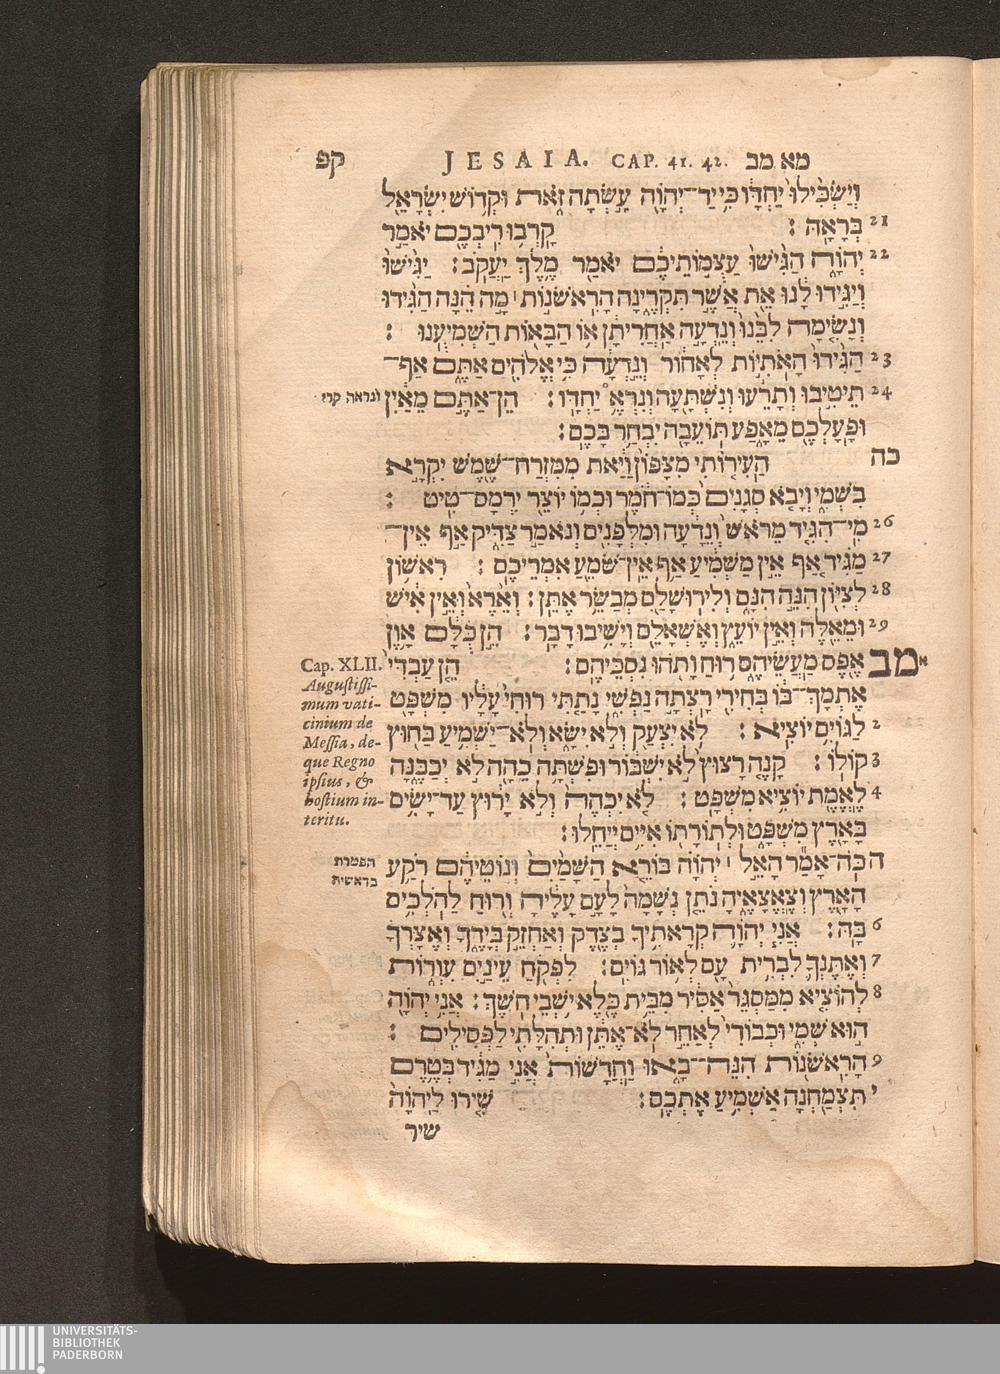 קפ JESAIA. CAP. 41. 42. מא מב
וְיַשְׂכִּילוּ יַחְדָּו כִּי יַד־יְהוָה עָשְׂתָה זֹּאת וּקְדוֹשׁ יִשְׂרָאֵל
21 בְּרָאָהּ : קָרְבוּ רִיבְכֶם יֹאמַר
22 יְהוָה הַגִּישׁוּ עַצְמוֹתֵיכֶם יֹאמַר מֶלֶךְ יַעֲקֹב : יַגִּישׁוּ
וְיַגִּידוּ לָנוּ אֵת אֲשֶׁר תִּקְרֶינָה הָרִאשֹׁנוֹת׀ מָה הֵנָּה הַגִּידוּ
וְנָשִׂימָה לִבֵּנוּ וְנֵדְעָה אַחֲרִיתָן אוֹ הַבָּאוֹת הַשְׁמִיעֻנוּ :
23 הַגִּידוּ הָאֹתִיּוֹת לְאָחוֹר וְנֵדְעָה כִּי אֱלֹהִים אַתֶּם אַף־
24 תֵּיטִיבוּ וְתָרֵעוּ וְנִשְׁתָּעָה וְנִרְאֶ° יַחְדָּו : הֵן־אַתֶּם מֵאַיִן
ונראה קרי
וּפָעָלְכֶם מֵאָפַע תּוֹעֵבָה יִבְחַר בָּכֶם :
כה הַעִירוֹתִי מִצָּפוֹן וַיַּאת מִמִּזְרַח־שֶׁמֶשׁ יִקְרָא
בִשְׁמִי וְיָבֹא סְגָנִים כְּמוֹ־חֹמֶר וּכְמוֹ יוֹצֵר יִרְמָס־טִיט :
26 מִי־הִגִּיד מֵרֹאשׁ וְנֵדָעָה וּמִלְּפָנִים וְנֹאמַר צַדִּיק אַף אֵין־
27 מַגִּיד אַף אֵין מַשְׁמִיעַ אַף אֵין־שֹׁמֵעַ אִמְרֵיכֶם : רִאשׁוֹן
28 לְצִיּוֹן הִנֵּה הִנָּם וְלִירוּשָׁלַםִ מְבַשֵּׂר אֶתֵּן : וְאֵרֶא וְאֵין אִישׁ
29 וּמֵאֵלֶּה וְאֵין יוֹעֵץ וְאֶשְׁאָלֵם וְיָשִׁיבוּ דָבָר : הֵן כֻּלָּם אָוֶן
א מב אֶפֶס מַעֲשֵׂיהֶם רוּחַ וָתֹהוּ נִסְכֵּיהֶם : הֵן עַבְדִּי
Cap. XLII.
Augustissi-
mum vati-
cinium de
Messia, de-
que Regno
ipsius, &
hostium in-
teritu.
אֶתְמָךְ־בּוֹ בְּחִירִי רָצְתָה נַפְשִׁי נָתַתִּי רוּחִי עָלָיו מִשְׁפָּט
2 לַגּוֹיִם יוֹצִיא : לֹא יִצְעַק וְלֹא יִשָּׂא וְלֹא־יַשְׁמִיעַ בַּחוּץ
3 קוֹלוֹ : קָנֶה רָצוּץ לֹא יִשְׁבּוֹר וּפִשְׁתָּה כֵהָה לֹא יְכַבֶּנָּה
4 לֶאֱמֶת יוֹצִיא מִשְׁפָּט : לֹא יִכְהֶה וְלֹא יָרוּץ עַד־יָשִׂים
בָּאָרֶץ מִשְׁפָּט וּלְתוֹרָתוֹ אִיִּים יְיַחֵלוּ :
ה כֹּה־אָמַר הָאֵל׀ יְהוָה בּוֹרֵא הַשָּׁמַיִם וְנוֹטֵיהֶם רֹקַע
הפטרת
בראשית
הָאָרֶץ וְצֶאֱצָאֶיהָ נֹתֵן נְשָׁמָה לָעָם עָלֶיהָ וְרוּחַ לַהֹלְכִים
6 בָּהּ : אֲנִי יְהוָה קְרָאתִיךָ בְצֶדֶק וְאַחְזֵק בְּיָדֶךָ וְאֶצָּרְךָ
7 וְאֶתֶּנְךָ לִבְרִית עָם לְאוֹר גּוֹיִם : לִפְקֹחַ עֵינַיִם עִוְרוֹת
8 לְהוֹצִיא מִמַּסְגֵּר אַסִּיר מִבֵּית כֶּלֶא יֹשְׁבֵי חֹשֶׁךְ : אֲנִי יְהוָה
הוּא שְׁמִי וּכְבוֹדִי לְאַחֵר לֹא־אֶתֵּן וּתְהִלָּתִי לַפְּסִילִים :
9 הָרִאשֹׁנוֹת הִנֵּה־בָאוּ וַחֲדָשׁוֹת אֲנִי מַגִּיד בְּטֶרֶם
י תִּצְמַחְנָה אַשְׁמִיעַ אֶתְכֶם : שִׁירוּ לַיהוָה
שיר
UNIVERSITÄTS-
BIBLIOTHEK
PADERBORN